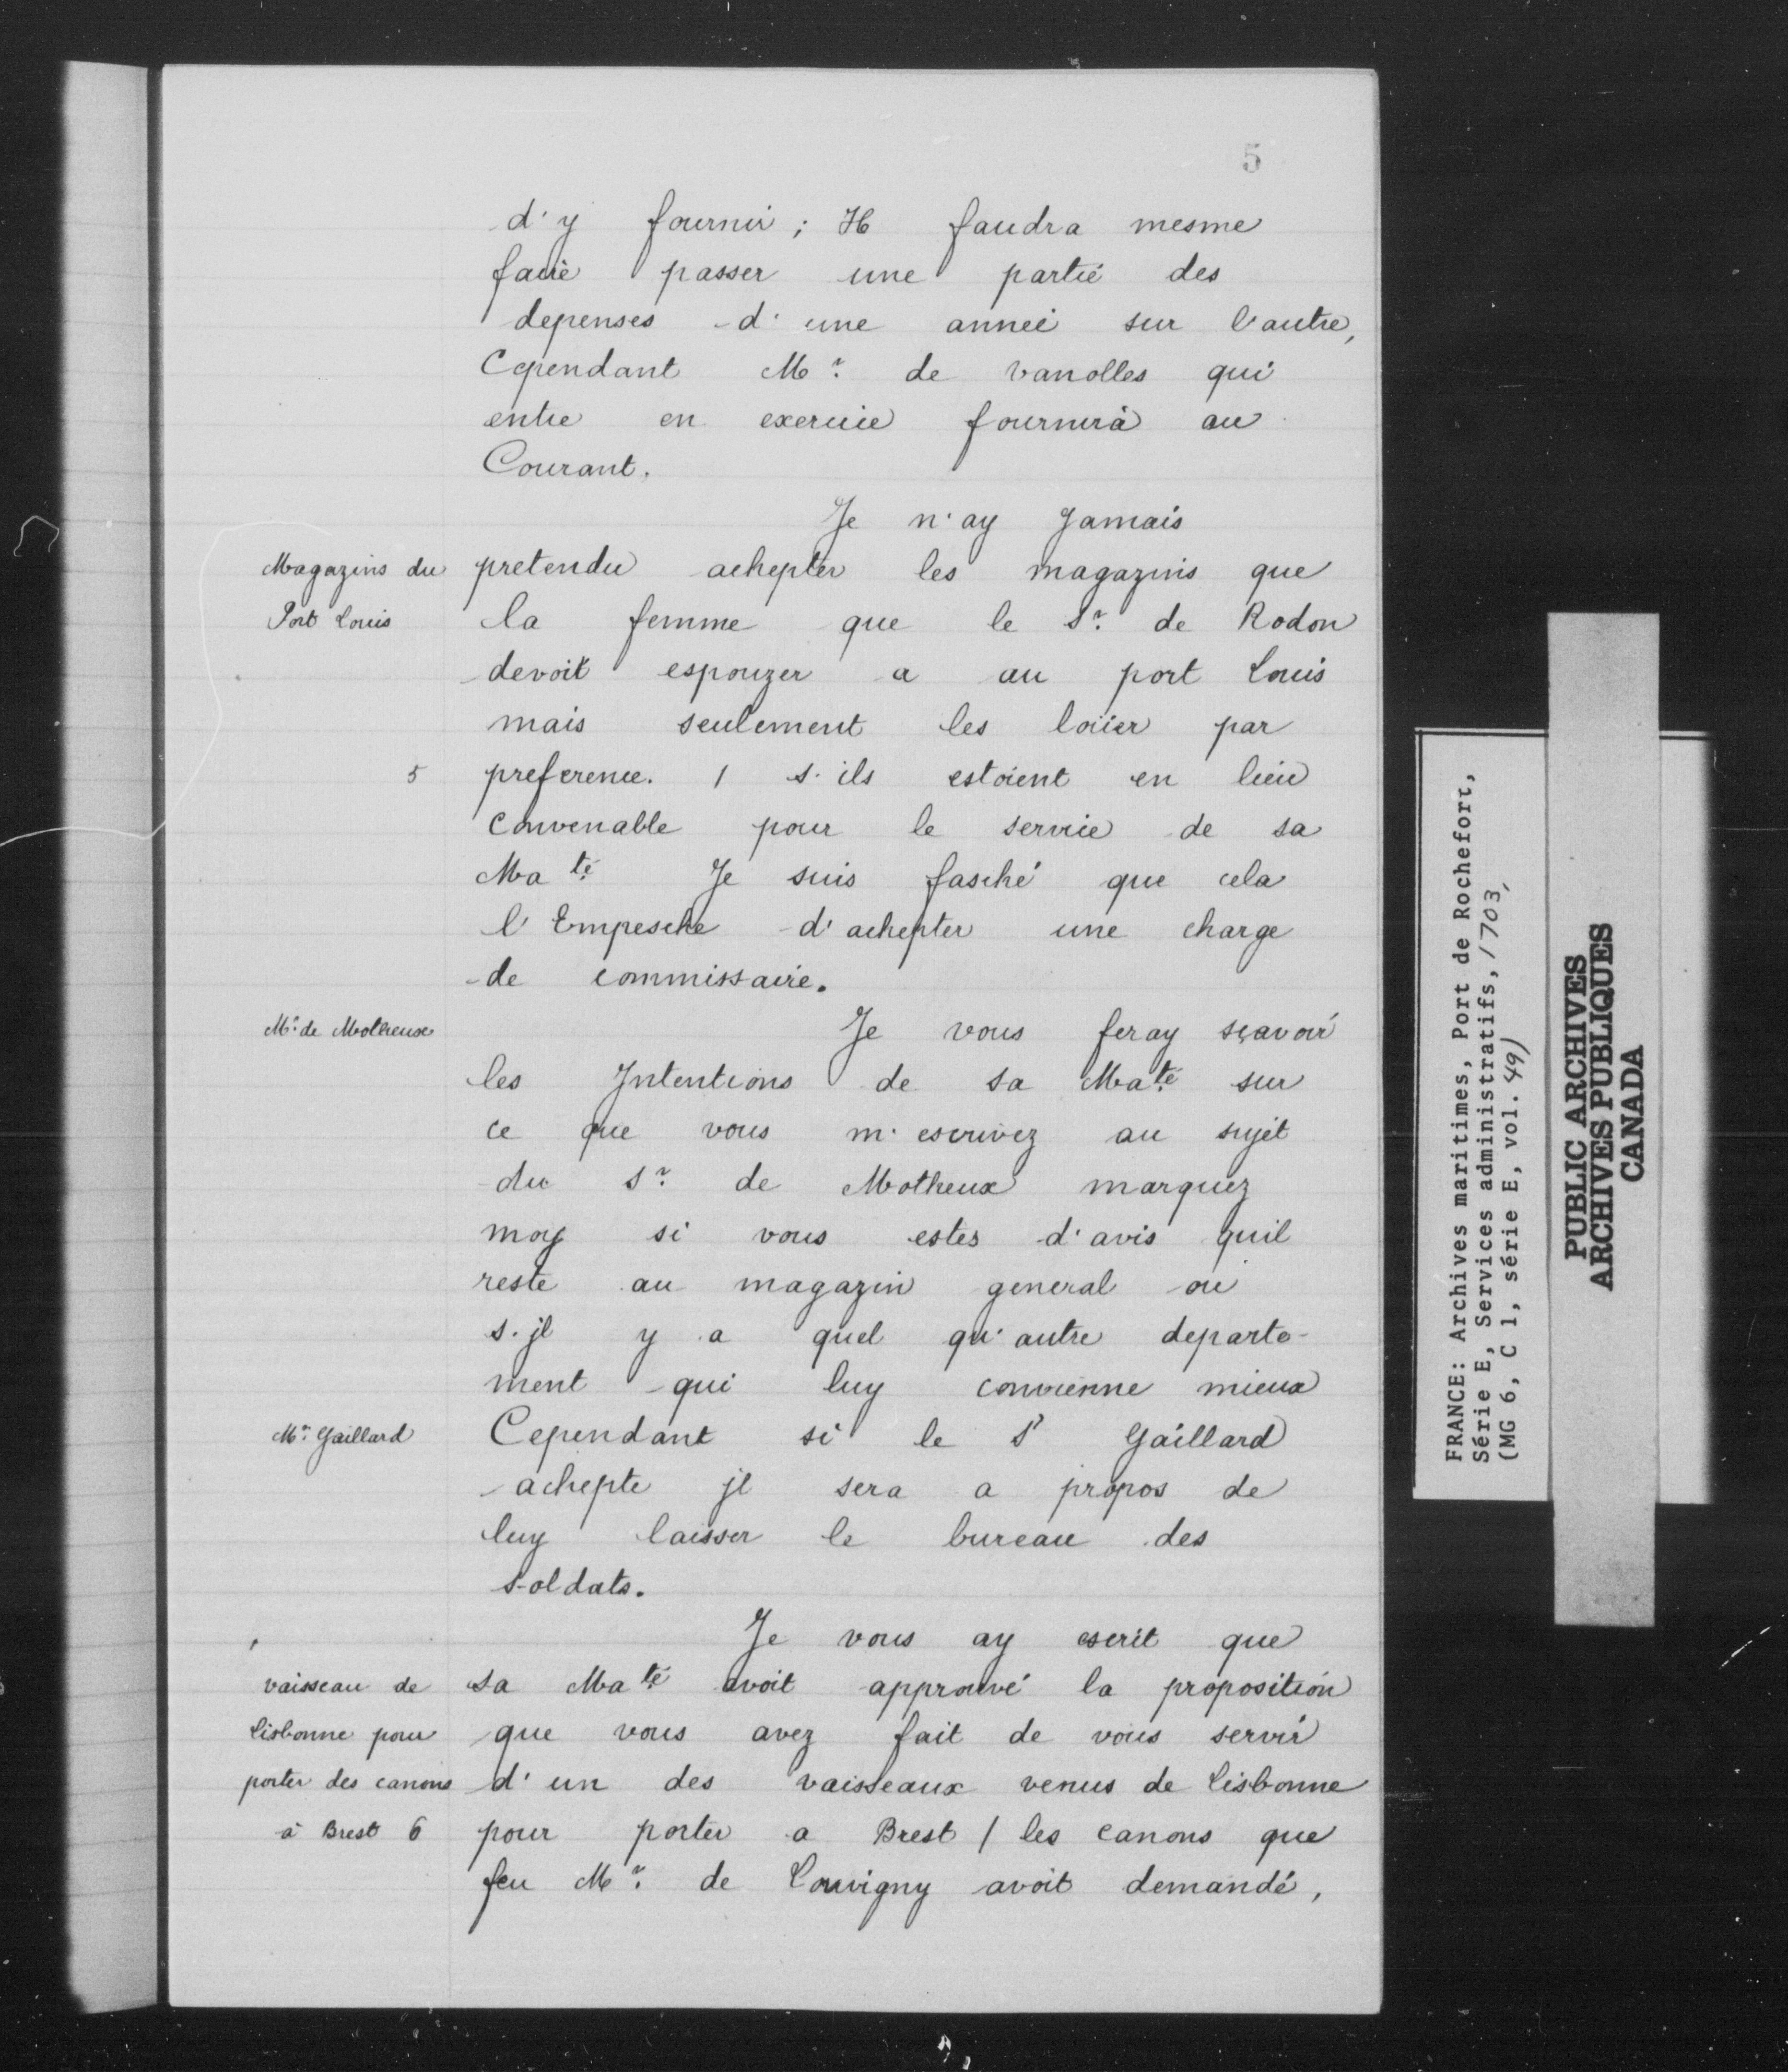 5
d'y fournir; Il faudra mesme
faire passer une partie des
depenses d'une année sur l'autre,
Cependant Mr. de vanolles qui
entre en exercice fournira au
Courant.
Je n'ay Jamais
Magazins du pretendu achepter les magazins que
Port Louis la femme que le Sr. de Rodon
devoit espouzer a au port Louis
mais seulement les loüer par
5 preference. / s'ils estoient en lieu
Convenable pour le service de sa
Ma té Je suis fasché que cela
l'Empesche d'achepter une charge
de commissaire.
Mr. de Motheux Je vous feray sçavoir
les Intentions de sa Maté sur
ce que vous m'escrivez au sujet
du Sr. de Motheux marquez
moy si vous estes d'avis quil
reste au magazin general ou
s'jl y a quel qu'autre departe-
ment qui luy convienne mieux
Mr. Gaillard Cependant si le Sr Gaillard
achepte jl sera a propos de
luy laisser le bureau des
soldats.
Je vous ay escrit que
vaisseau de sa Maté avoit approuvé la proposition
Lisbonne pour que vous avez fait de vous servir
porter des canons d'un des vaisseaux venus de Lisbonne
à Brest 6 pour porter a Brest / les canons que
feu Mr. de Louvigny avoit demandé,
FRANCE: Archives maritimes, Port de Rochefort,
Série E, Services administratifs, 1703,
(MG 6, C 1, série E, vol. 49)
PUBLIC ARCHIVES
ARCHIVES PUBLIQUES
CANADA